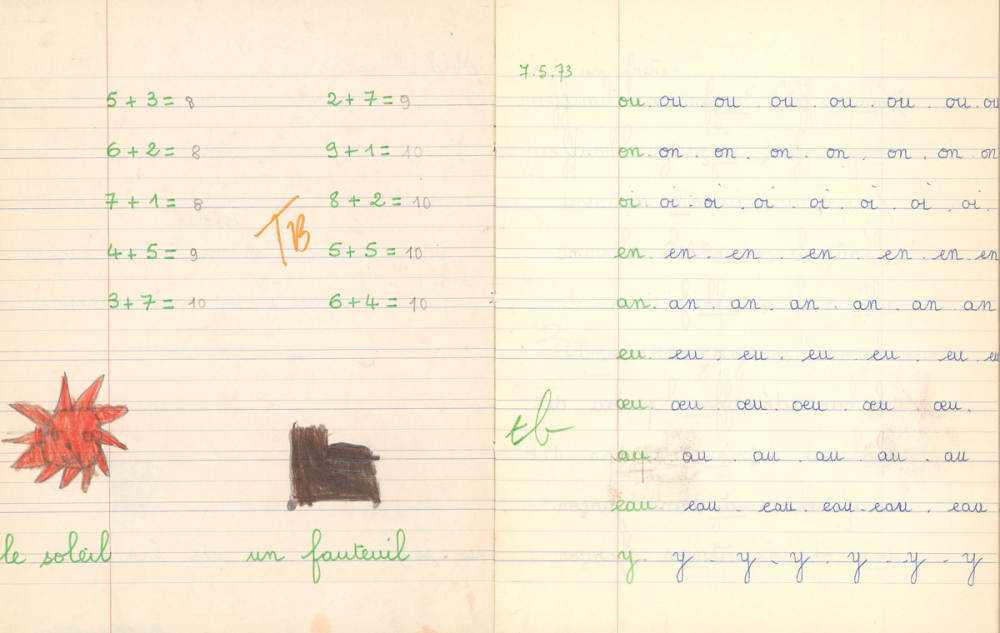 5 + 3 = 8
6 + 2 = 8
7 + 1 = 8
4 + 5 = 9
3 + 7 = 10
2 + 7 = 9
9 + 1 = 10
8 + 2 = 10
5 + 5 = 10
6 + 4 = 10
TB
le soleil
un fauteuil
7.5.73
ou. ou ou ou . ou . ou . ou. ou
on. on . on . on . on . on . on on
oi. oi . oi . oi . oi . oi . oi . oi.
en. en . en . en . en . en. en
an. an . an . an . an . an an
eu. eu . eu . eu . eu . eu . eu
œu. œu . œu . œu . œu . œu.
au. au . au . au . au . au
eau. eau . eau . eau. eau . eau
y. y . y . y . y . y . y
tb